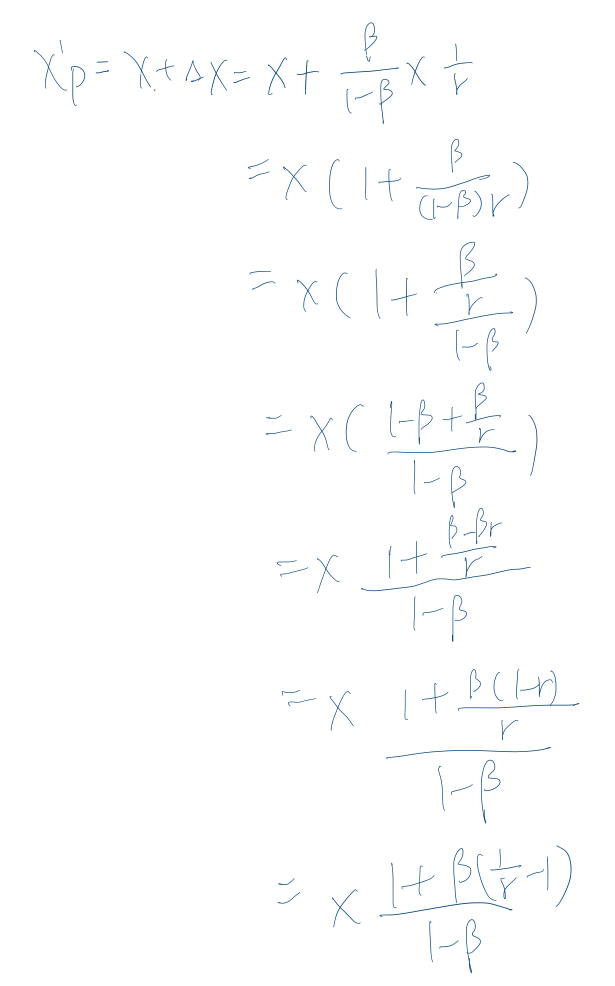 x'p = x + Δx = x + \frac{β}{1-β} x \frac{1}{r}
= x ( 1 + \frac{β}{(1-β)r} )
= x ( 1 + \frac{\frac{β}{r}}{1-β} )
= x ( \frac{1-β+\frac{β}{r}}{1-β} )
= x \frac{1+\frac{β-βr}{r}}{1-β}
= x \frac{1+\frac{β(1-r)}{r}}{1-β}
= x \frac{1+β(\frac{1}{r}-1)}{1-β}